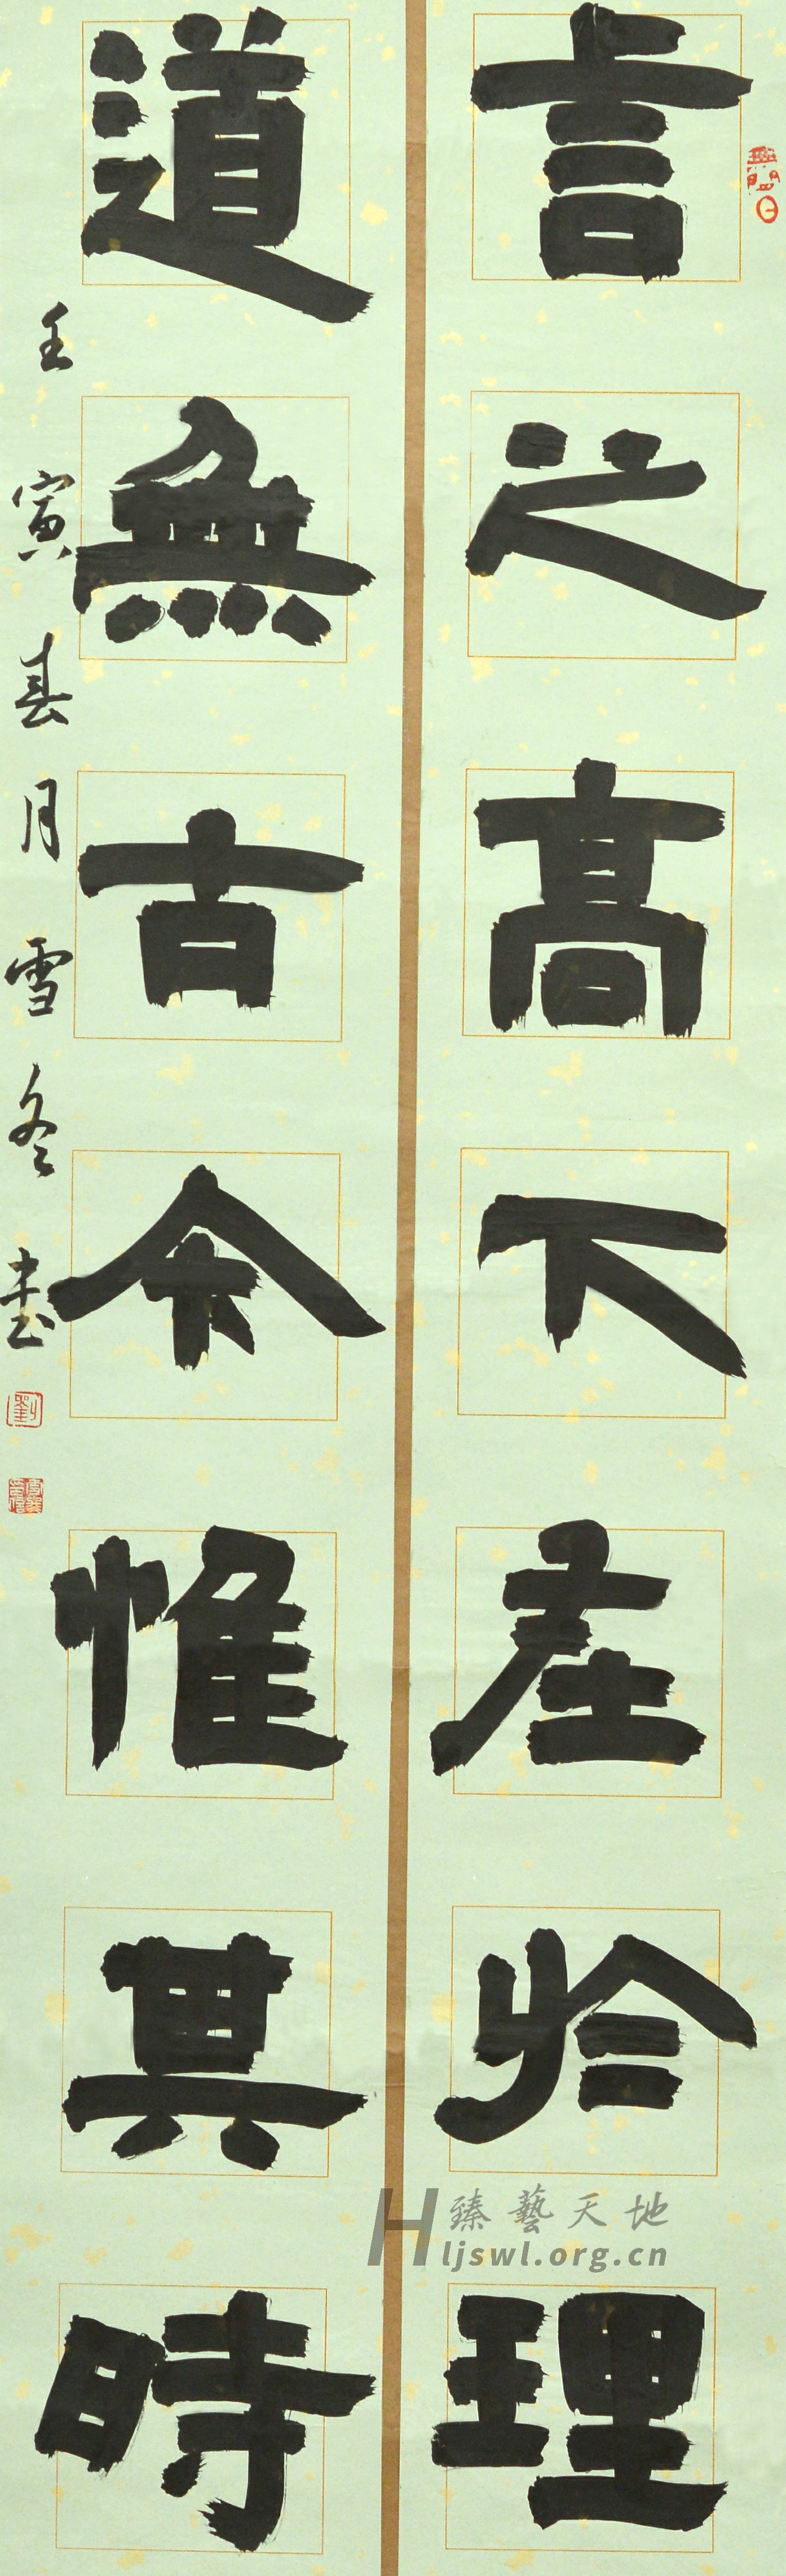 言之高下在於理
道無古今惟其時
壬寅春月雪冬書
劉
臻藝天地
Hljswl.org.cn